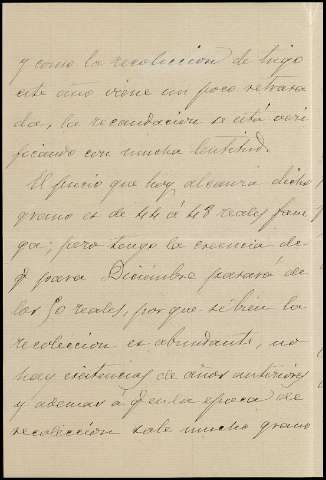 y como la recolección de trigo
este año viene un poco retrasa
da, la recaudación se está veri
ficando con mucha lentitud.
El precio que hoy alcanza dicho
grano es de 44 á 48 reales fane
ga; pero tengo la creencia de
q para Diciembre pasará de
los 50 reales, por que si bien la
recolección es abundante, no
hay existencias de años anteriores
y además á q en la epoca de
recolección sale mucho grano